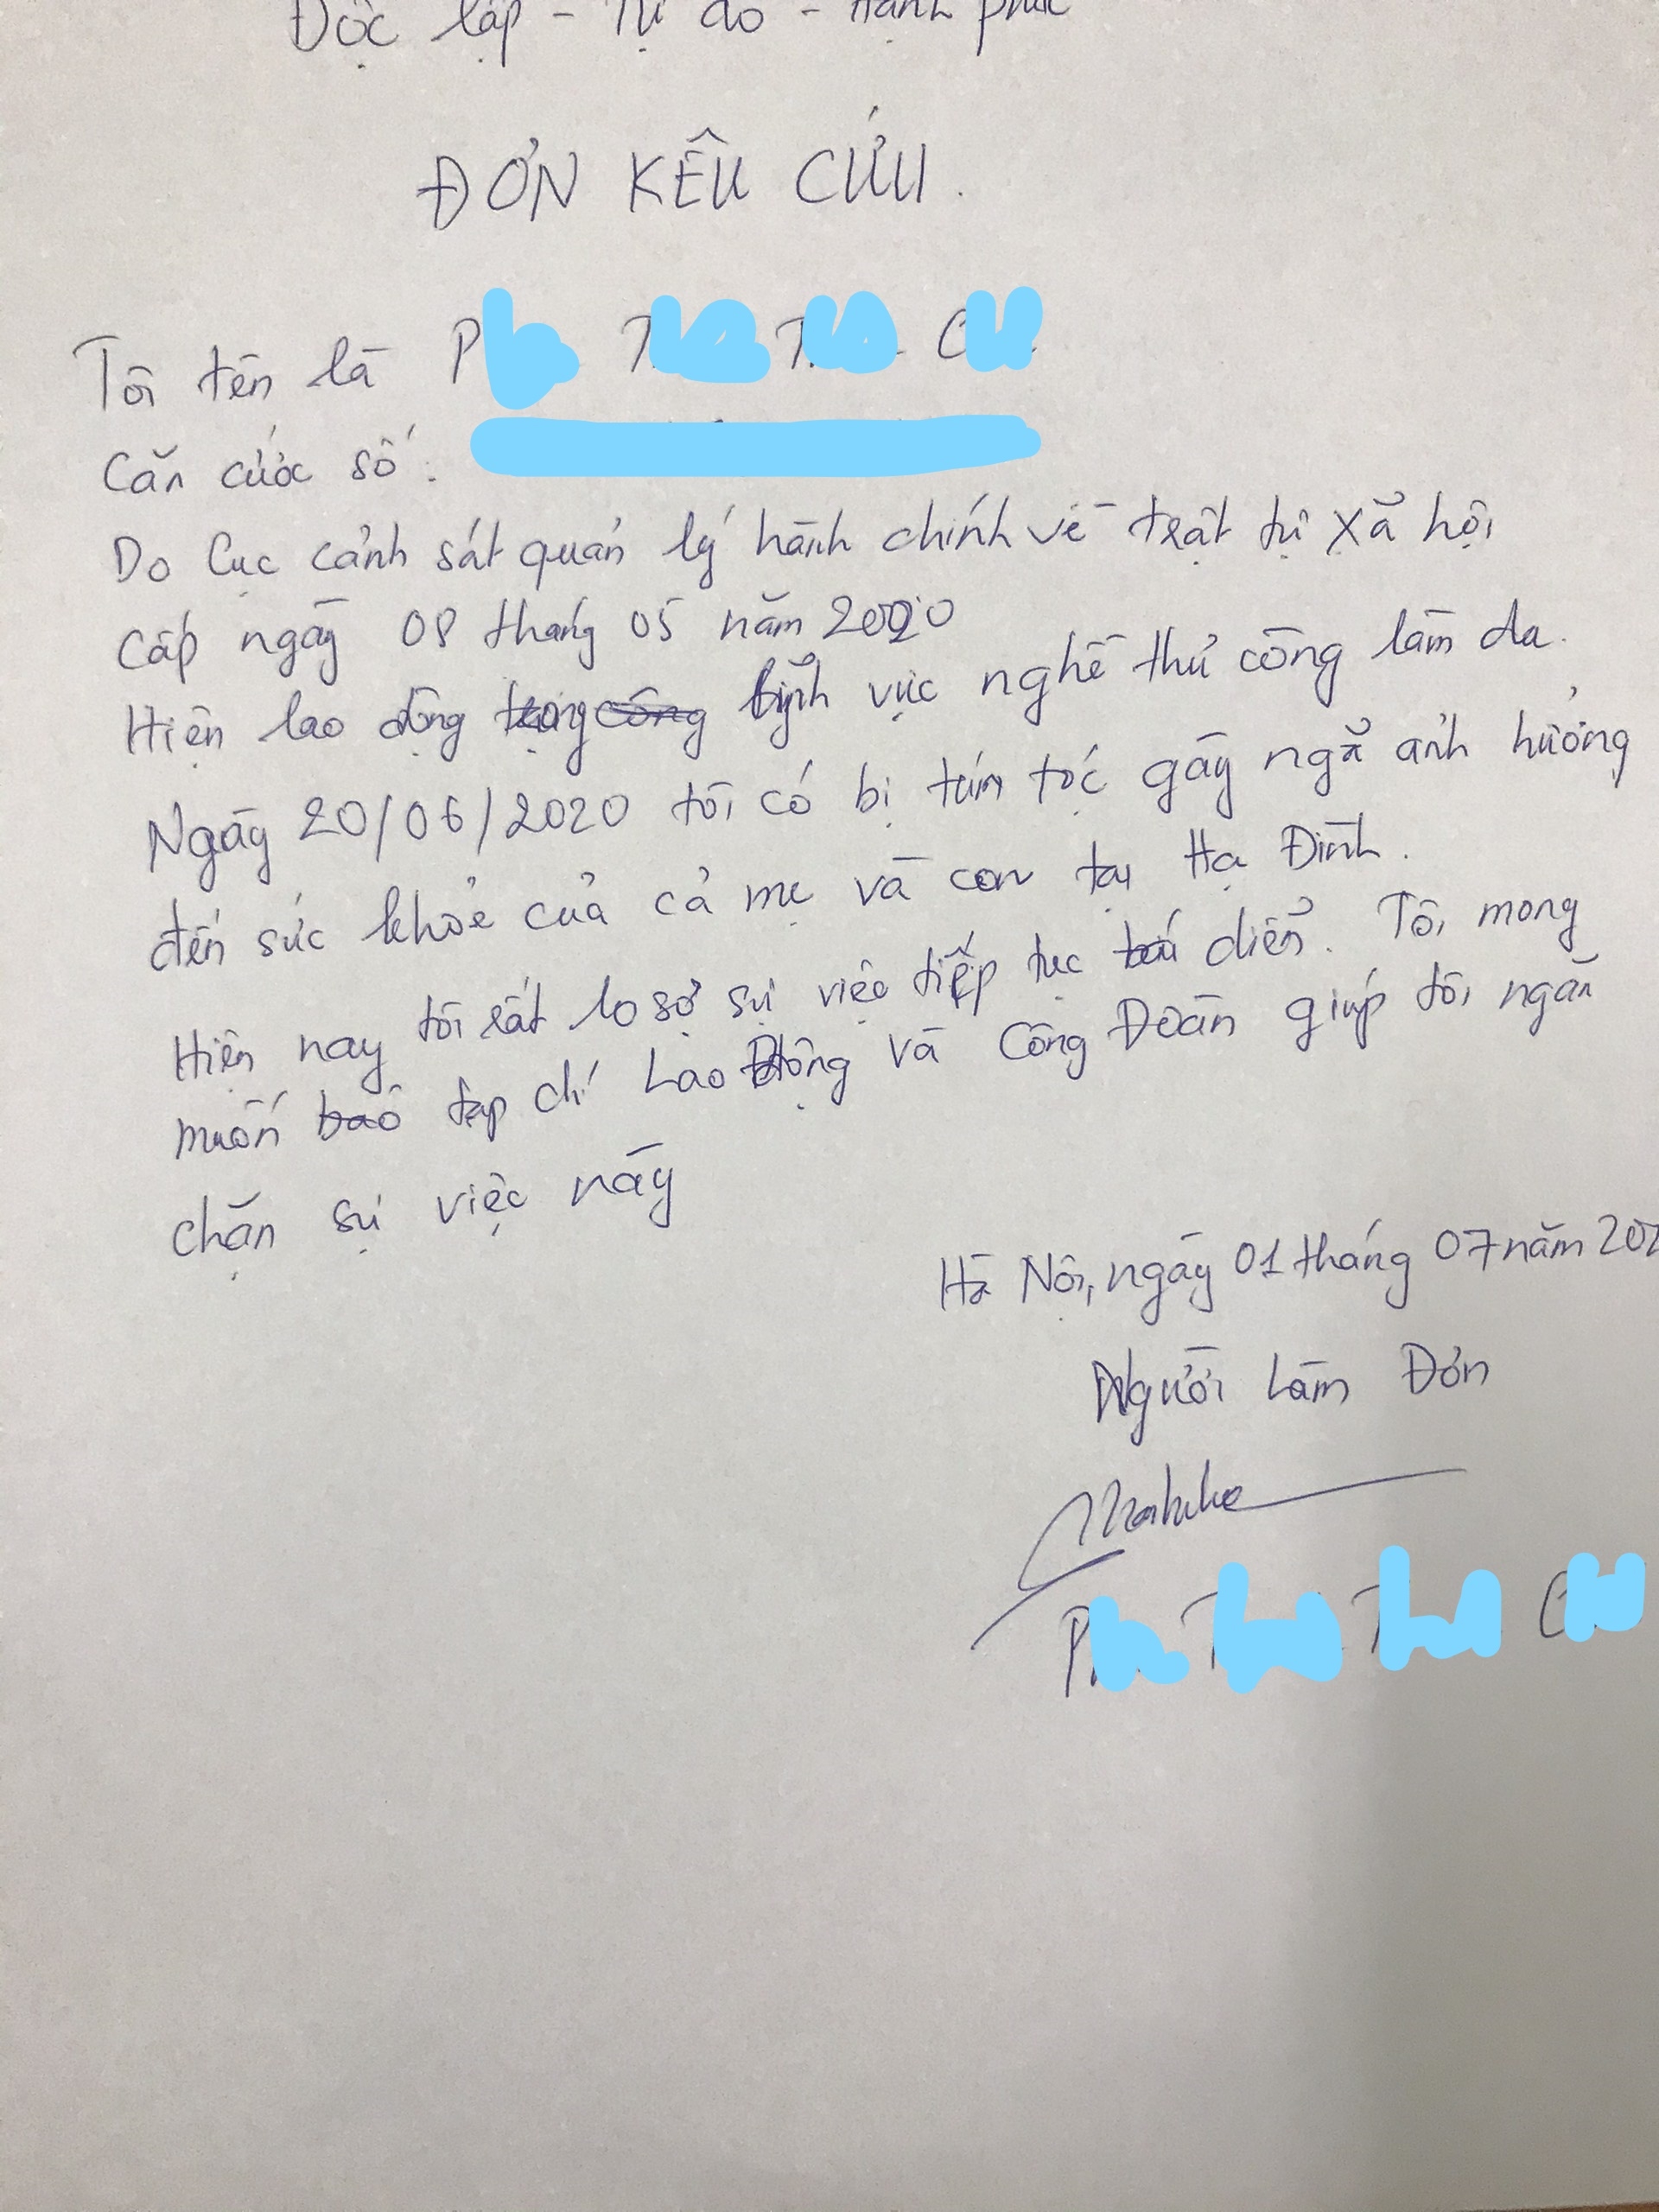 Độc lập - Tự do - Hạnh phúc
ĐƠN KÊU CỨU.
Tôi tên là P T T C
Căn cước số:
Do Cục cảnh sát quản lý hành chính về trật tự xã hội
cấp ngày 08 tháng 05 năm 2020
Hiện lao động lĩnh vực nghề thủ công làm da.
Ngày 20/06/2020 tôi có bị túm tóc gây ngã ảnh hưởng
đến sức khỏe của cả mẹ và con tại Hạ Đình.
Hiện nay tôi rất lo sợ sự việc tiếp tục diễn. Tôi mong
muốn tạp chí Lao Động và Công Đoàn giúp tôi ngăn
chặn sự việc này
Hà Nội, ngày 01 tháng 07 năm 202
Người Làm Đơn
P T T C